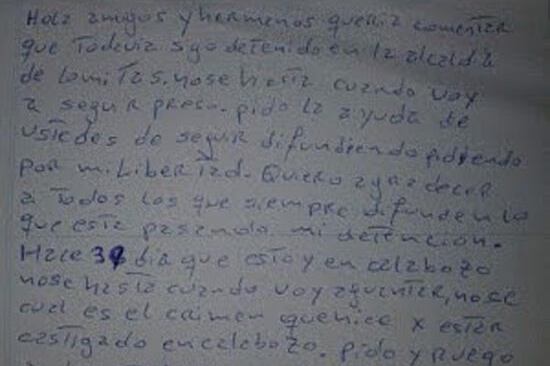 Hola amigos y hermenos queria comentar
que Todavia sgo detenido en la alcaldia
de lomitas. nose hasta cuando voy
a seguir preso. pido la ayuda de
ustedes de seguir difundiendo pidiendo
por mi Libertad. Quiero agradecer
a Todos los que siempre difunden lo
que esta pasando mi detencion.
Hace 39 dia que estoy en calabozo
nose hasta cuando voy aguentar, nose
cual es el crimen que hice x estar
castigado en calabozo. pido y ruego